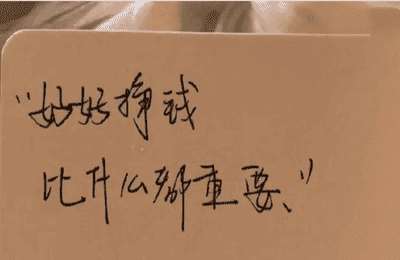 “好好挣钱
比什么都重要、”